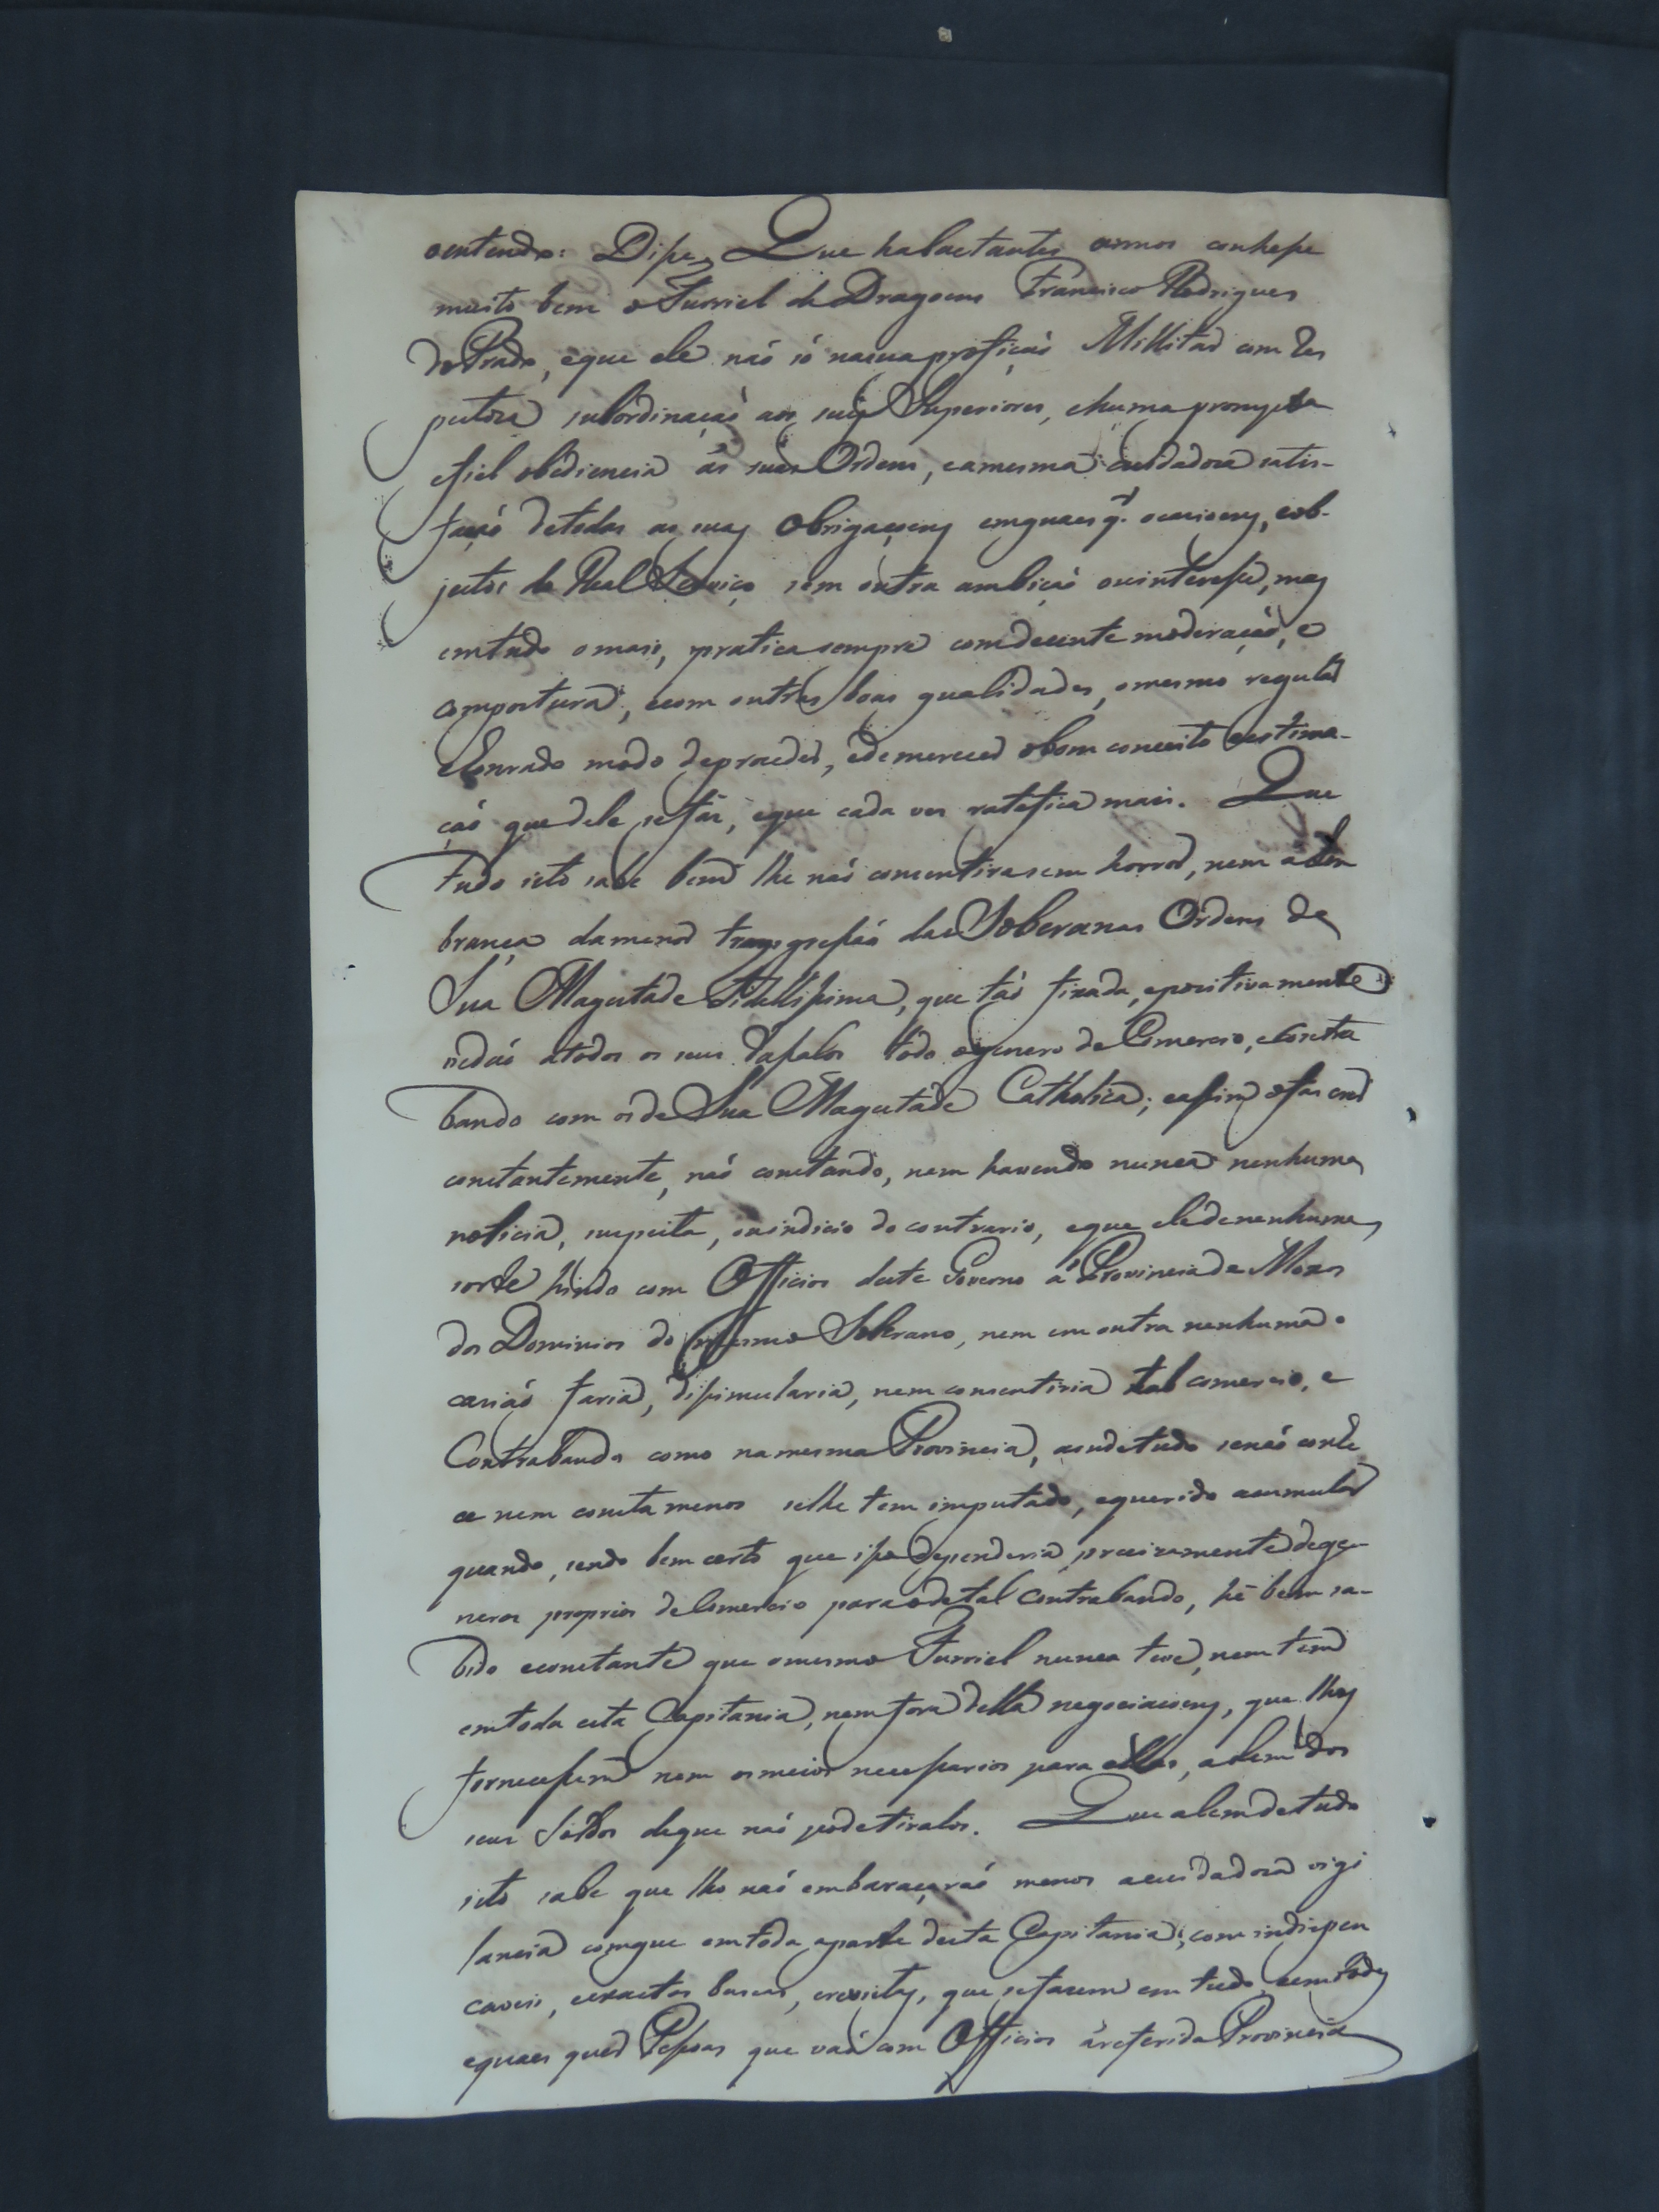 oentendo: Dise, Que ha bactantes annos conhese
muito bem o Furriel de Dragoens Francisco Rodrigues
do Prado, eque ele naó só nasua profiçaó Militar com Res
peitoza subordinaçaó aos seus Superiores, ehuma prompta
efiel obediencia ás suas Ordens, eamesma cuidadoza satis-
façaó detodas as suas Obrigaçoens emquaes q.r ocazioens, eob-
jectos do Real Serviço sem outra ambiçaó ouinterese, mas
emtudo omais, pratica sempre comdecente moderaçaó, e
compostura, ecom outras boas qualidades, omesmo regular
ehonrado modo deproceder, edemerecer obom conceito eestima-
çaó que dele sefás, eque cada ves ratefica mais. Que
tudo isto sabe bem lhe naó consentira sem horror, nem alem
brança damenor transgresaó das Soberanas Ordens de
Sua Magestade Fidellisima, que taó fixada, epozitivamente
vedaó atodos os seus Vasalos todo ogenero de Comercio, eContra
bando com osde Sua Magestade Catholica; easim ofas
constantemente, naó constando, nem havendo nunca nenhuma
noticia, suspeita, ouindicio do contrario, eque ele denenhuma
sorte hindo com Officios deste Governo á Provincia de Moxos
dos Dominios do mesmo Soberano, nem em outra nenhuma o
caziaó faria, disimularia, nem consentiria tal comercio, e
Contrabando como namesma Provincia, aondetudo senaó conhe
ce nem consta menos selhe tem imputado, equerido acumular
quando, sendo bem certo que iso dependeria precizamente dege-
neros proprios deComercio para odetal Contrabando, hé bem sa-
bido econstante que omesmo Furriel nunca teve, nem tem
emtoda esta Capitania, nem fora della negociacoens, que lhos
fornecesem nem osmeios necesarios para ellas, alem dos
seus Soldos deque naó podetiralos. Que alemdetudo
isto sabe que lho naó embaraçaraó menos acuidadoza vigi
lancia comque emtoda aparte desta Capitania, com indispen
caveis, eexactas buscas, erevistas, que sefazem em tudo, eemtodas
equaes quer Pesoas que vaó com Officios áreferida Provincia